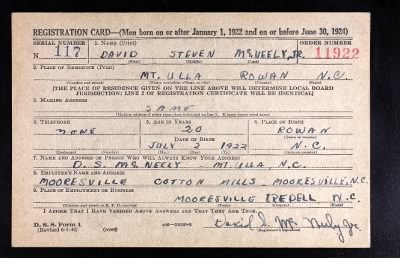 REGISTRATION CARD—(Men born on or after January 1, 1922 and on or before June 30, 1924)
SERIAL NUMBER 1. NAME (Print)
N 117 DAVID STEVEN McNEELY, JR. 11922
2. PLACE OF RESIDENCE (Print)
MT. ULLA ROWAN N.C.
[THE PLACE OF RESIDENCE GIVEN ON THE LINE ABOVE WILL DETERMINE LOCAL BOARD
JURISDICTION; LINE 2 OF REGISTRATION CERTIFICATE WILL BE IDENTICAL]
3. MAILING ADDRESS
SAME
4. TELEPHONE 5. AGE IN YEARS 6. PLACE OF BIRTH
NONE 20 ROWAN
DATE OF BIRTH
JULY 2 1922 N.C.
7. NAME AND ADDRESS OF PERSON WHO WILL ALWAYS KNOW YOUR ADDRESS
D. S. McNEELY - MT. ULLA, N.C.
8. EMPLOYER'S NAME AND ADDRESS
MOORESVILLE COTTON MILLS - MOORESVILLE, N.C.
9. PLACE OF EMPLOYMENT OR BUSINESS
MOORESVILLE IREDELL N.C.
I AFFIRM THAT I HAVE VERIFIED ABOVE ANSWERS AND THAT THEY ARE TRUE.
D. S. S. Form 1
David S. McNeely Jr